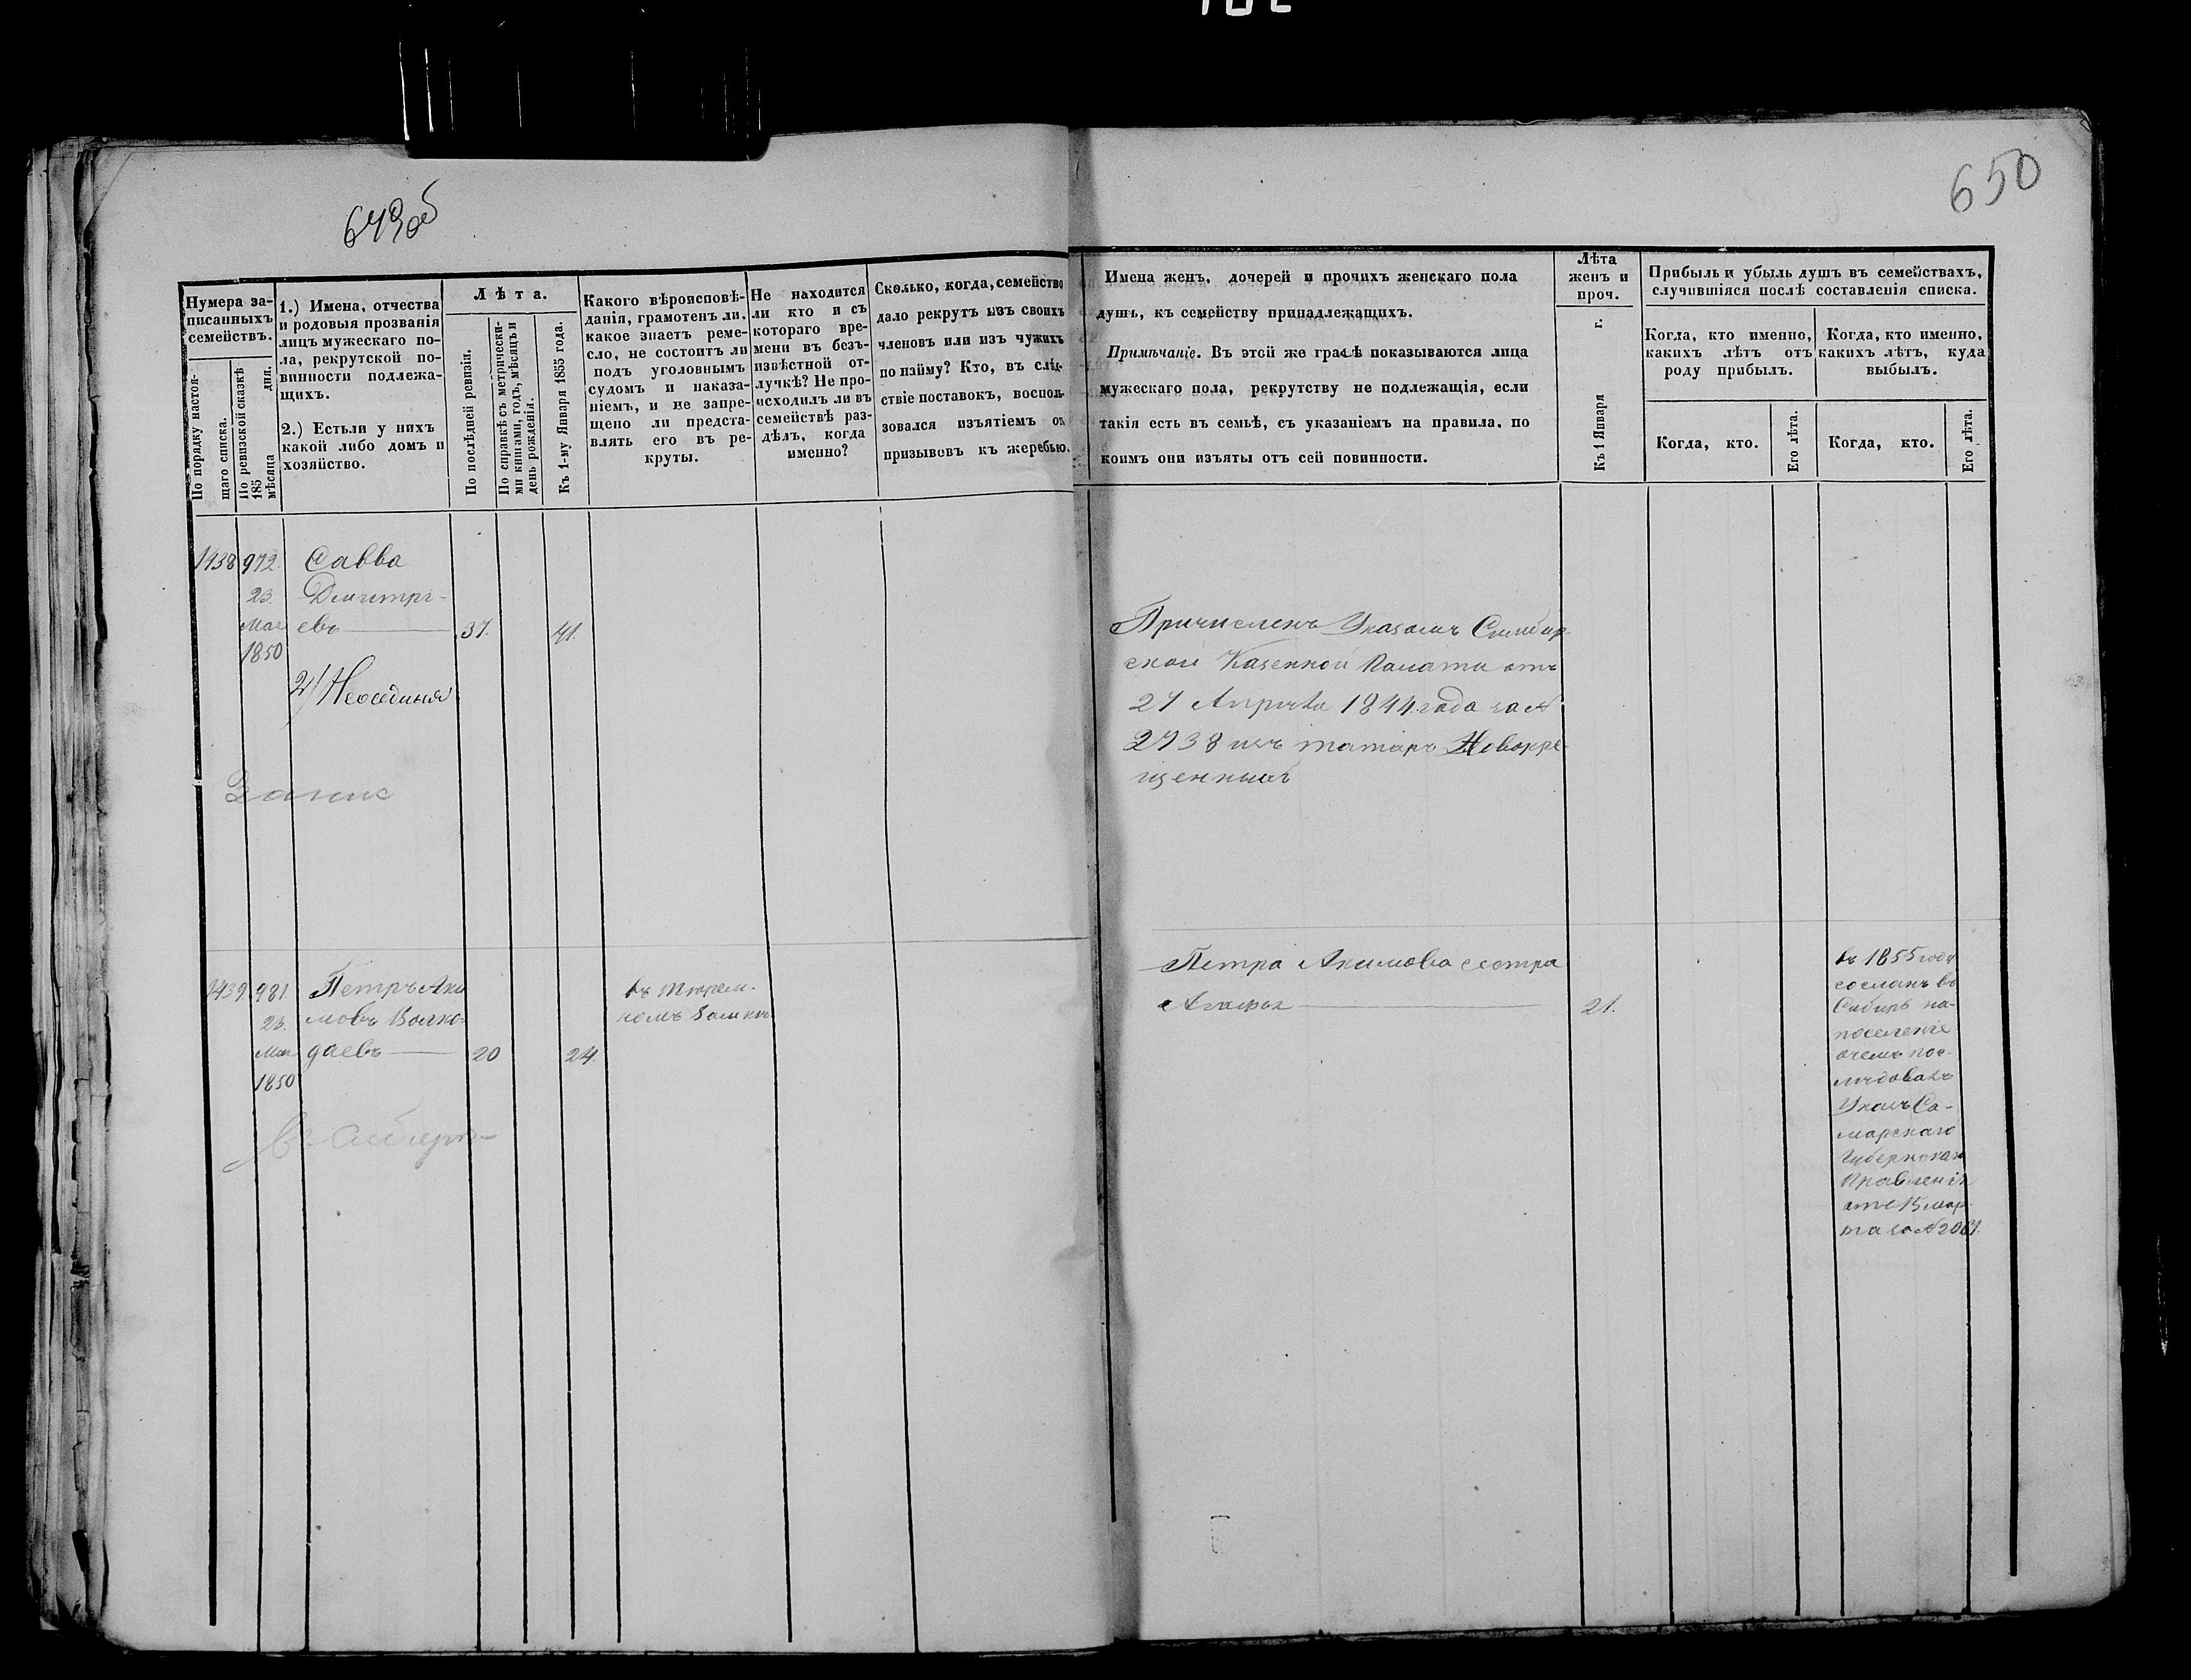 650
Нумера за-
писанныхъ
семействъ.
По порядку настоя-
щаго списка.
По ревизской сказкѣ
185 мѣсяца дня.
1.) Имена, отчества
и родовыя прозванія
лицъ мужескаго по-
ла, рекрутской по-
винности подлежа-
щихъ.
2.) Естьли у нихъ
какой либо домъ и
хозяйство.
Лѣта.
По послѣдней ревизіи.
По справкѣ съ метрически-
ми книгами, годъ, мѣсяцъ и
день рожденія.
Къ 1-му Января 1855 года.
Какого вѣроисповѣ-
данія, грамотенъ ли,
какое знаетъ реме-
сло, не состоитъ ли
подъ уголовнымъ
судомъ и наказа-
ніемъ, и не запре-
щено ли предста-
влять его въ ре-
круты.
Не находится
ли кто и съ
котораго вре-
мени въ безъ-
извѣстной от-
лучкѣ? Не про-
исходилъ ли въ
семействѣ раз-
дѣлъ, когда
именно?
Сколько, когда, семейство
дало рекрутъ изъ своихъ
членовъ или изъ чужихъ
по найму? Кто, въ слѣд-
ствіе поставокъ, восполь-
зовался изъятіемъ от
призывовъ къ жеребью.
Имена женъ, дочерей и прочихъ женскаго пола
душъ, къ семейству принадлежащихъ.
Примѣчаніе. Въ этой же графѣ показываются лица
мужескаго пола, рекрутству не подлежащія, если
такія есть въ семьѣ, съ указаніемъ на правила, по
коимъ они изъяты отъ сей повинности.
Лѣта
женъ и
проч.
Къ 1 Января г.
Прибыль и убыль душъ въ семействахъ,
случившіяся послѣ составленія списка.
Когда, кто именно,
какихъ лѣтъ отъ
роду прибылъ.
Когда, кто именно,
какихъ лѣтъ, куда
выбылъ.
Когда, кто.
Его лѣта.
Когда, кто.
Его лѣта.
1438 972. Савва
23. Дмитрі-
Мая евъ 37. 41.
1850
2/ Неосѣдлый
Причисленъ Указомъ Симбир-
ской Казенной Палаты отъ
27 Апрѣля 1844 года за №
2738 изъ татаръ Новокре-
щенныхъ
1439. 981. Петръ Аки
23. мовъ
Мая даевъ 20 24.
1850
въ тюрем-
номъ замкѣ
въ Сибирь
Петра Акимова сестра
Агафья 21.
въ 1855 году
сосланъ въ
Сибирь на-
поселеніе
очемъ пос-
лѣдовалъ
Указъ Са-
марскаго
Губернскаго
Правленія
отъ 15 мар-
та за № 2061.